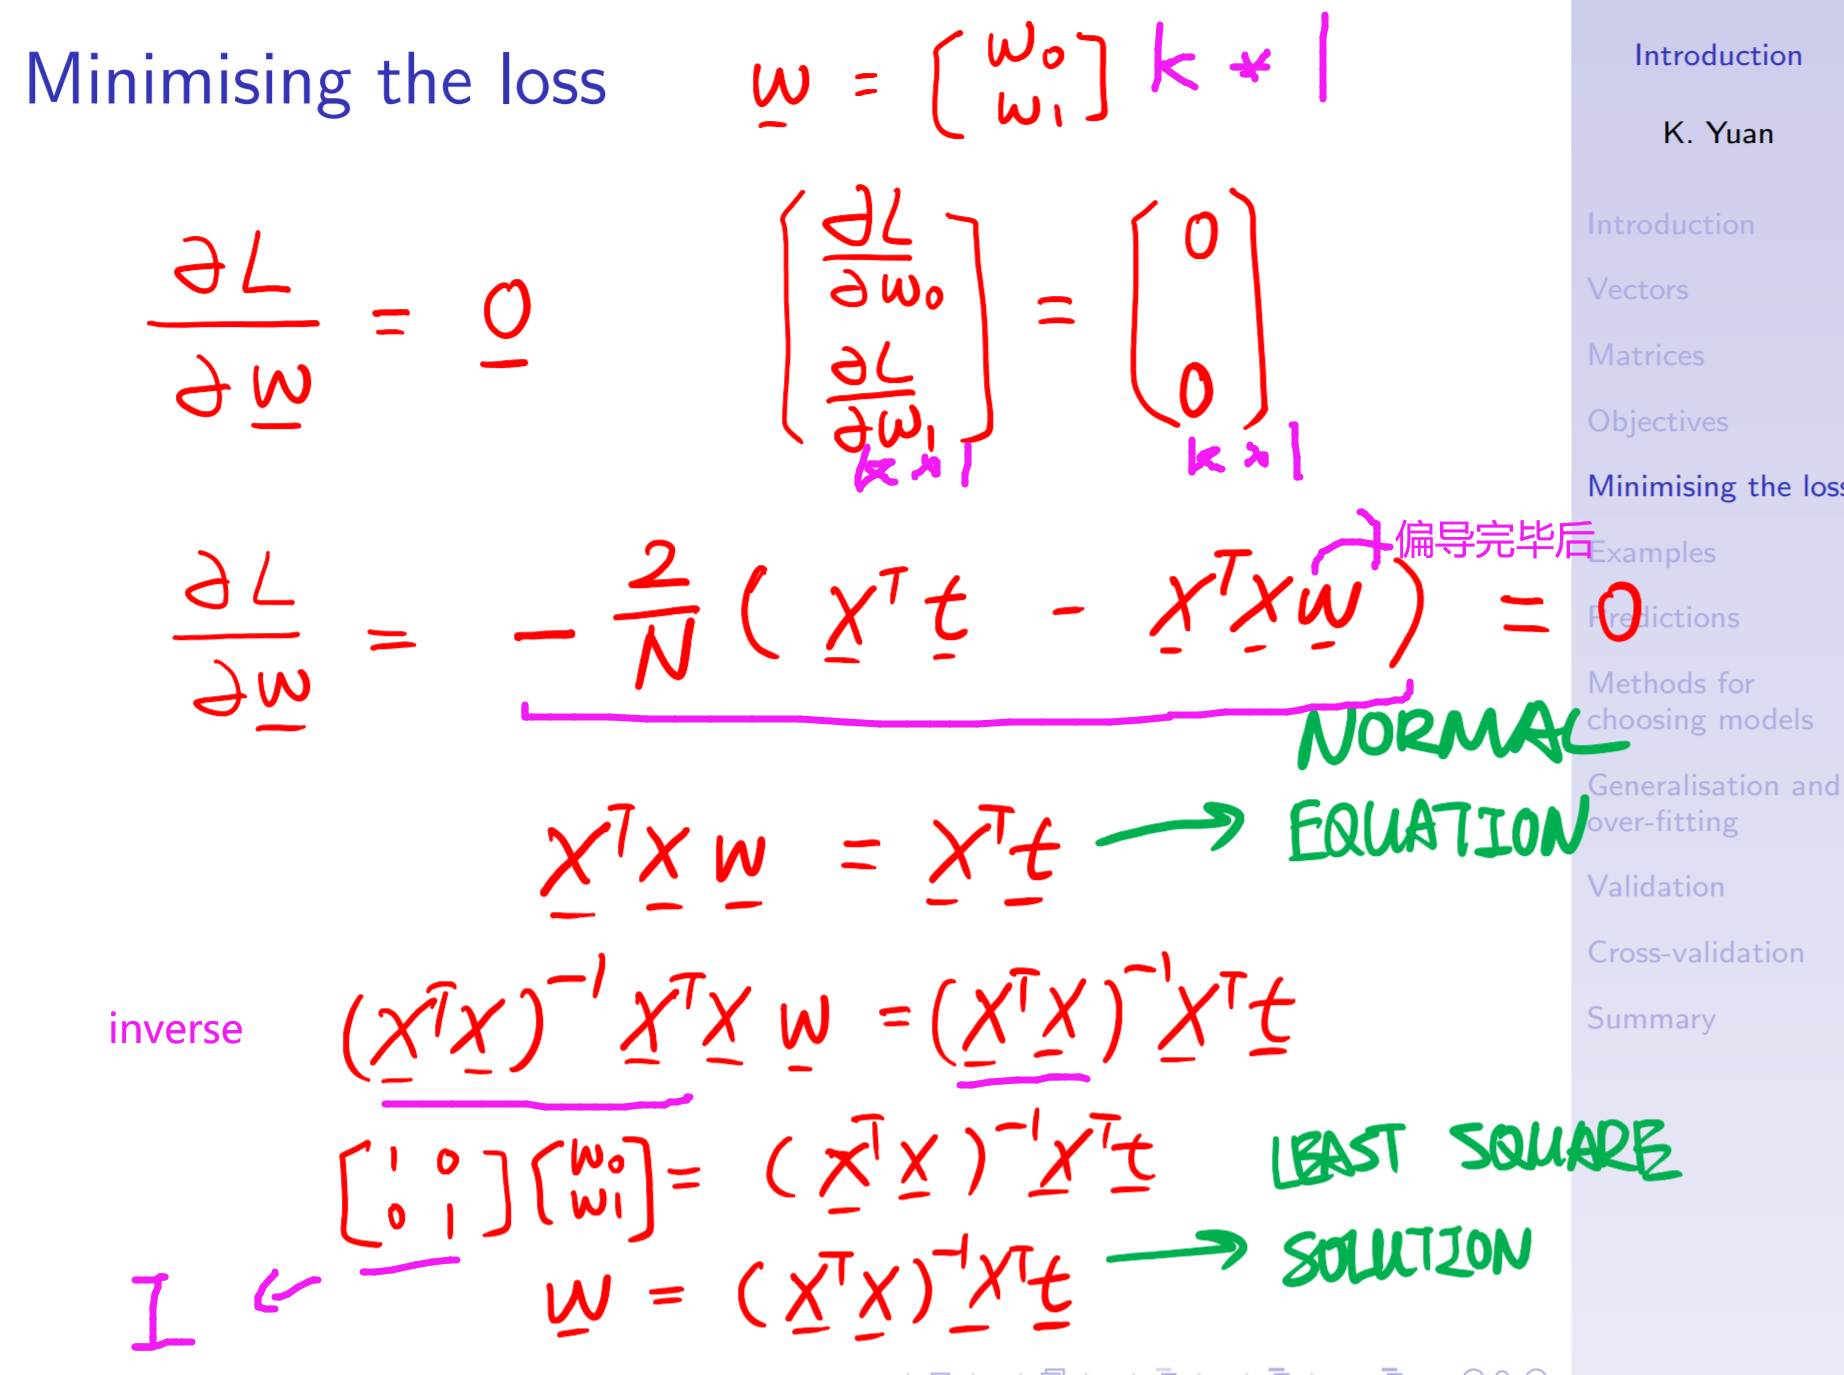 Minimising the loss
w = [w₀ w₁] k * 1
∂L/∂w = 0
[∂L/∂w₀ ∂L/∂w₁] = [0 0]
k * 1 k * 1
偏导完毕后
∂L/∂w = - 2/N (Xᵀt - XᵀXw) = 0
XᵀXw = Xᵀt → NORMAL EQUATION
inverse (XᵀX)⁻¹ XᵀX w = (XᵀX)⁻¹Xᵀt
[1 0 0 1] [w₀ w₁] = (XᵀX)⁻¹Xᵀt
I ← w = (XᵀX)⁻¹Xᵀt → LEAST SQUARE SOLUTION
Introduction
K. Yuan
Introduction
Vectors
Matrices
Objectives
Minimising the loss
Examples
Predictions
Methods for
choosing models
Generalisation and
over-fitting
Validation
Cross-validation
Summary